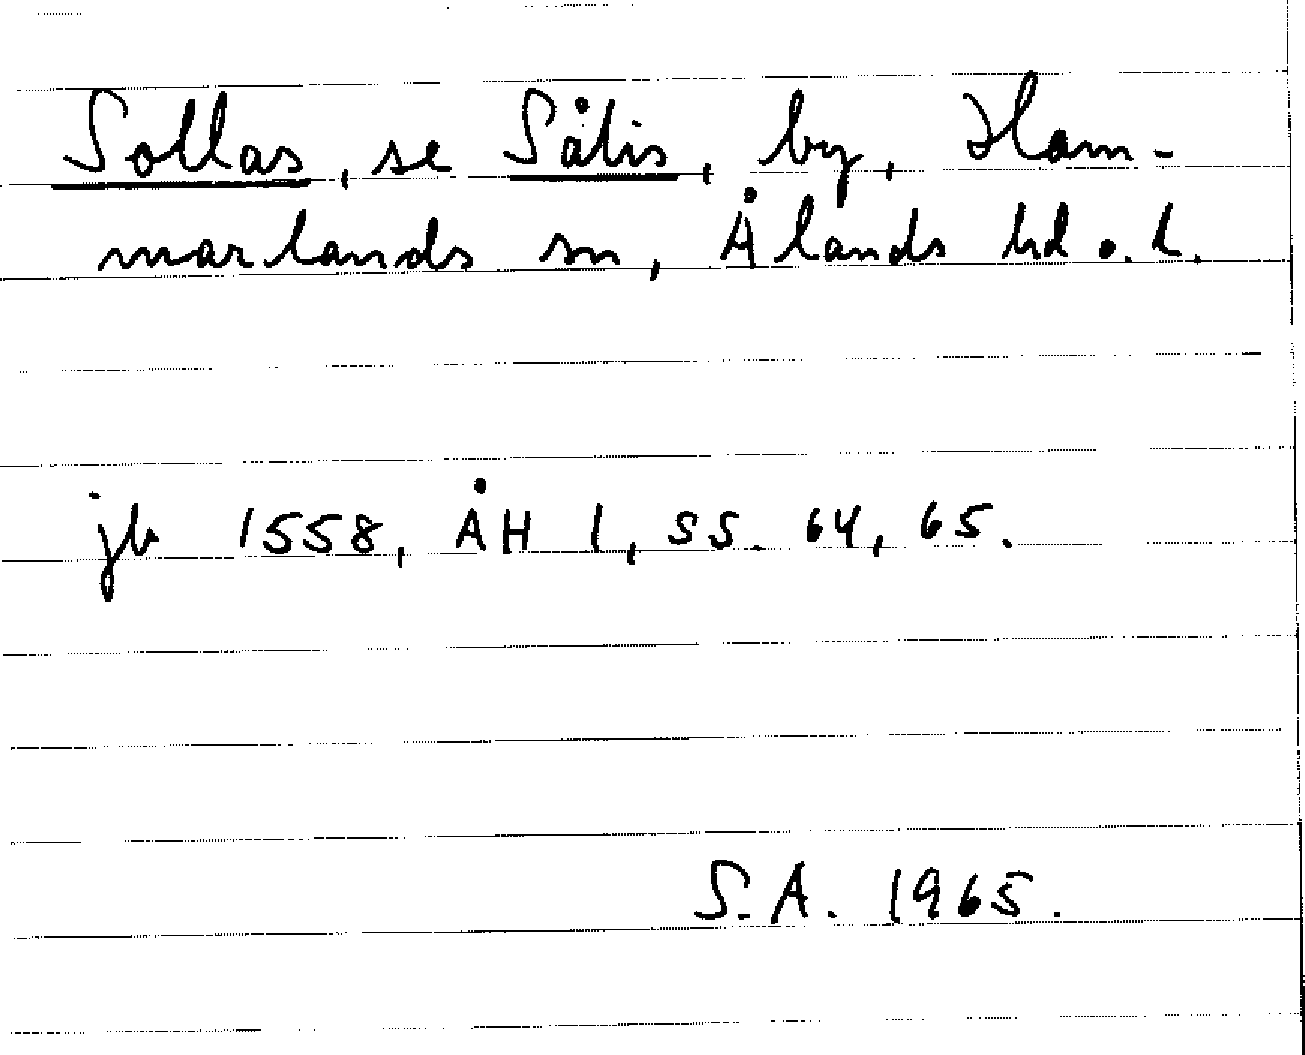 Sollas, se Sålis, by, Ham-
marlands sn, Ålands hd o. l.
jb 1558, ÅH 1, ss. 64, 65.
S.A. 1965.